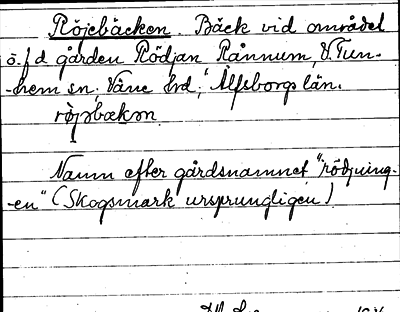 Röjebäcken. Bäck vid området
ö.f.d gården Rödjan Rånnum, V.Tun-
-hem sn; Väne hrd; Älfsborgs län.
røjəbækən
Namn efter gårdsnamnet "rödjning-
-en" (Skogsmark ursprungligen)